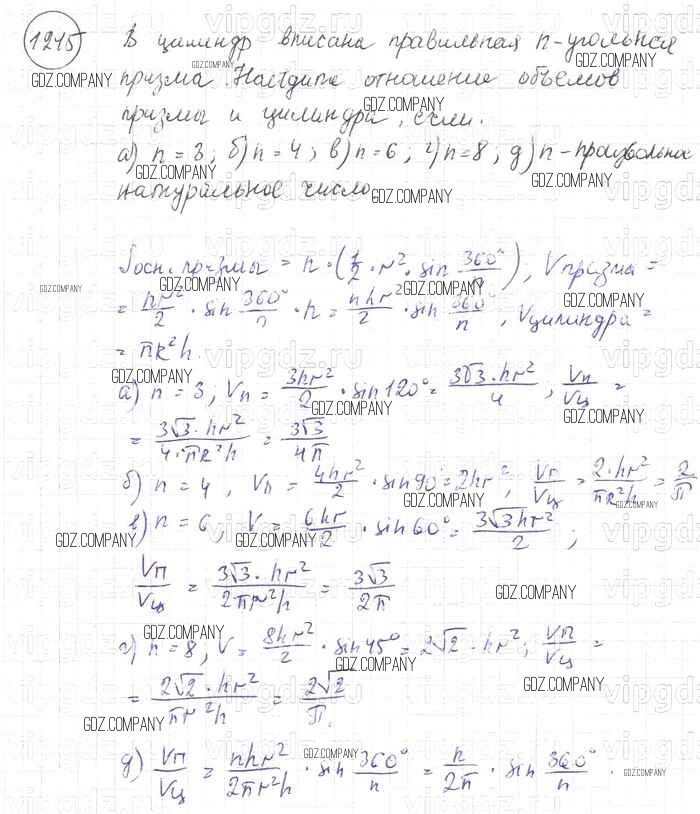 1215 В цилиндр вписана правильная n-угольная
призма. Найдите отношение объемов
призмы и цилиндра, если:
а) n = 3; б) n = 4; в) n = 6; г) n = 8; д) n - произвольное
натуральное число.
Sосн. призмы = n · (1/2 · r² · sin 360°/n), Vпризма =
= nr²/2 · sin 360°/n · h = nhr²/2 · sin 360°/n, Vцилиндра =
= πR²h.
а) n = 3; Vп = 3hr²/2 · sin 120° = 3√3 · hr²/4; Vп/Vц =
= 3√3 · hr²/4·πR²h = 3√3/4π
б) n = 4, Vп = 4hr²/2 · sin 90° = 2hr², Vп/Vц = 2·hr²/πR²h = 2/π
в) n = 6, V = 6hr/2 · sin 60° = 3√3hr²/2;
Vп/Vц = 3√3 · hr²/2πr²h = 3√3/2π
г) n = 8; V = 8hr²/2 · sin 45° = 2√2 · hr²; Vп/Vц =
= 2√2 · hr²/πr²h = 2√2/π.
д) Vп/Vц = nhr²/2πr²h · sin 360°/n = n/2π · sin 360°/n.
GDZ.COMPANY
vipgdz.ru